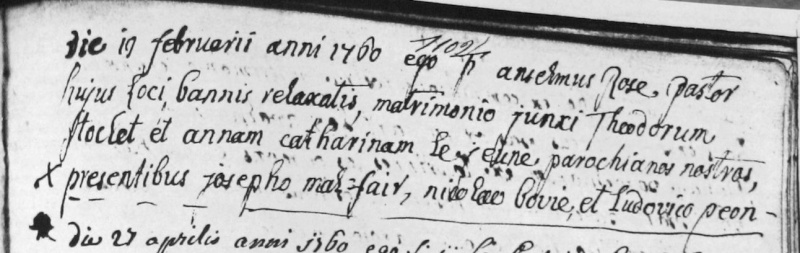 die 19 februerii anni 1760 ego fr anselmus Rose pastor
hujus loci, bannis relaxatis, matrimonio junxi Theodorum
stoclet et annam catharinam Le Jeune parochianos nostros,
x presentibus josepho mal-fair, nicolao bovie, et Ludovico peon-
die 27 aprilis anni 1760 ego